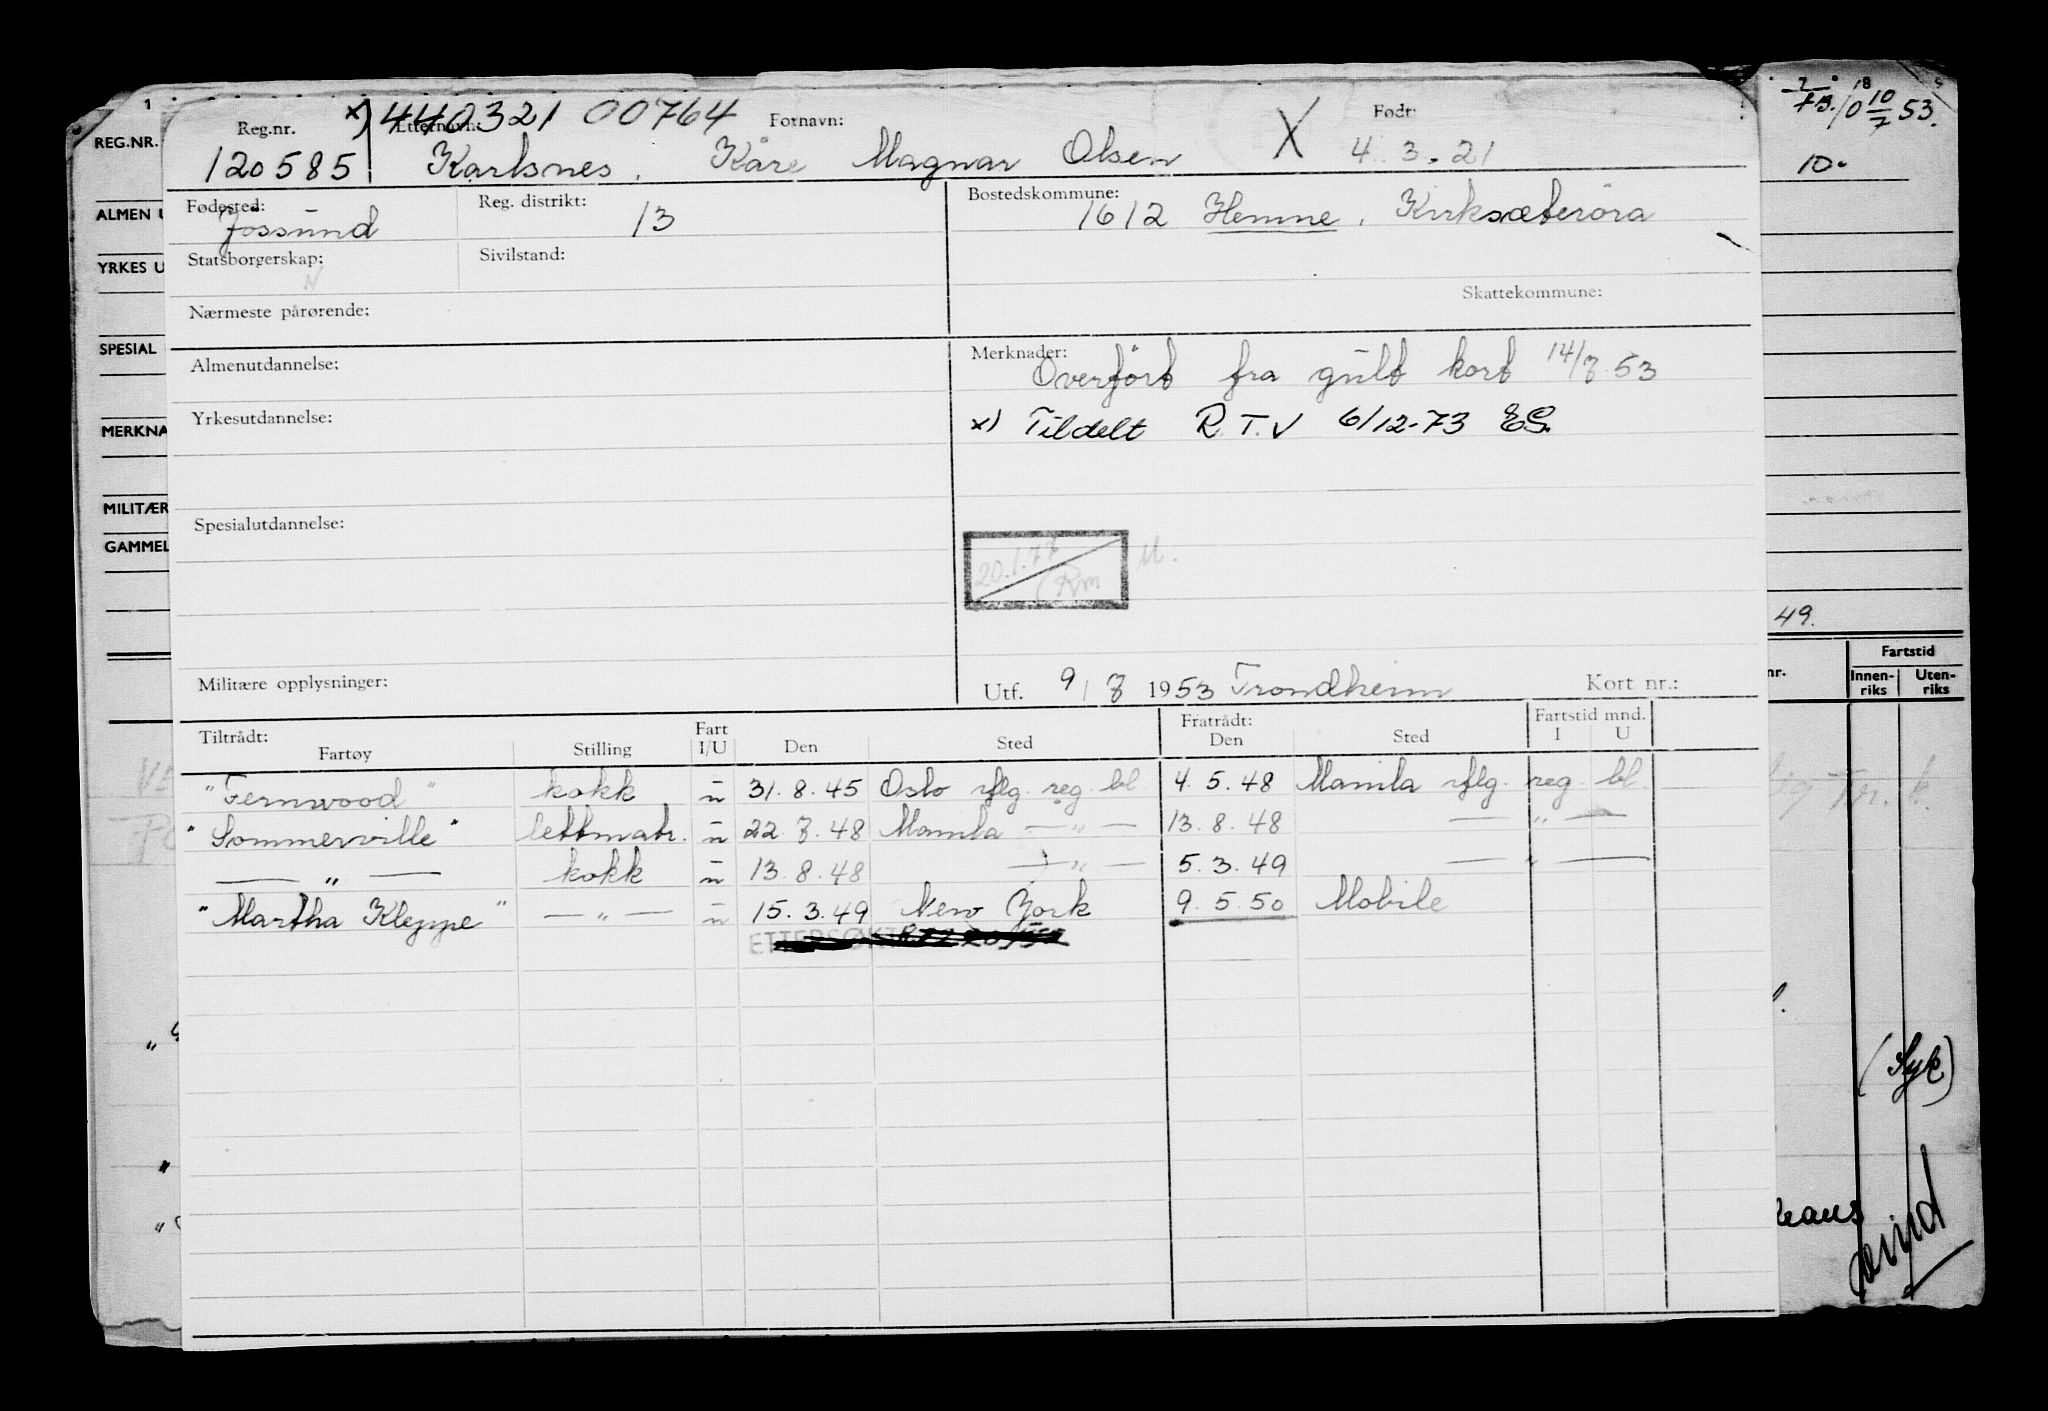 1
7/73. 18 10 10/7 53.
REG.NR.
Reg.nr. x) 440321 00764
Etternavn: Fornavn: X Født:
120585 Karlsnes, Kåre Magnar Olsen 4.3.21
10-
ALMEN U
Fødested: Jössund
Reg. distrikt: 13
Bostedskommune: 1612 Hemne, Kirksæteröra
YRKES U
Statsborgerskap: N
Sivilstand:
Skattekommune:
Nærmeste pårørende:
SPESIAL
Almenutdannelse:
Merknader: Overfört fra gult kort 14/7.53
Yrkesutdannelse:
x) Tildelt R.T.V 6/12-73 ES.
MERKNA
MILITÆR
Spesialutdannelse:
GAMMEL
20.1.77 Rm M.
49.
Militære opplysninger:
Utf. 9/7 1953 Trondheim Kort nr.:
nr. Fartstid
Innenriks Utenriks
Tiltrådt: Fart Fratrådt: Fartstid mnd.
Fartøy Stilling I/U Den Sted Den Sted I U
"Fernwood" kokk u 31.8.45 Oslo iflg. reg. bl. 4.5.48 Manila iflg. reg. bl.
"Sommerville" lettmatr. u 22.7.48 Manila — " — 13.8.48 — " —
— " — kokk u 13.8.48 — " — 5.3.49 — " —
"Martha Kleppe" — " — u 15.3.49 New York 9.5.50 Mobile
ETTERSØKT
(Syk)